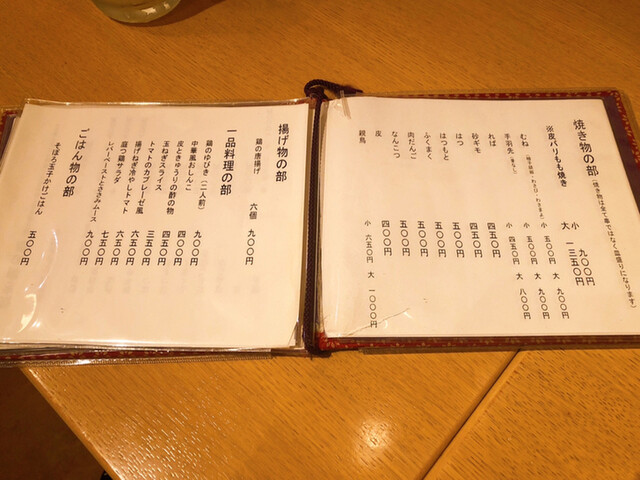 焼き物の部（焼き物は全て串ではなく皿盛りになります）
※皮パリもも焼き 小 九〇〇円
大 一三五〇円
むね 小 五〇〇円 大 九〇〇円
手羽先 小 五〇〇円 大 九〇〇円
小 四五〇円 大 八〇〇円
れば 四五〇円
砂ギモ 四五〇円
はつ 四五〇円
はつもと 五〇〇円
ふくまく 五〇〇円
肉だんご 五〇〇円
なんこつ 五〇〇円
皮 四〇〇円
親鳥 小 六五〇円 大 一〇〇〇円
揚げ物の部
鶏の唐揚げ 六個 九〇〇円
一品料理の部
鶏のゆびき（二人前） 九〇〇円
中華風おしんこ 四五〇円
皮ときゅうりの酢の物 四〇〇円
玉ねぎスライス 四五〇円
トマトのカプレーゼ風 三五〇円
揚げねぎ冷やしトマト 六五〇円
蒸つ鶏サラダ 六五〇円
レバーペーストとささみムース 七五〇円
九〇〇円
ごはん物の部
そぼろ玉子かけごはん 五〇〇円